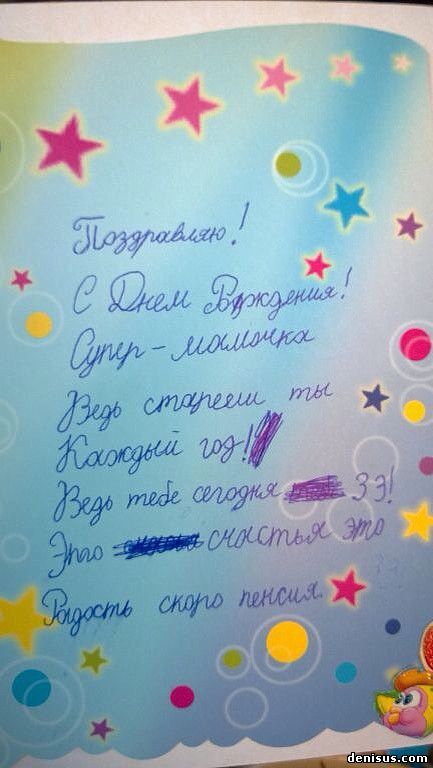 Поздравляю!
С Днем Рождения!
Супер-мамочка
Ведь старееш ты
Каждый год!
Ведь тебе сегодня 39!
Это счастья это
Радость скоро пенсия.
denisus.com